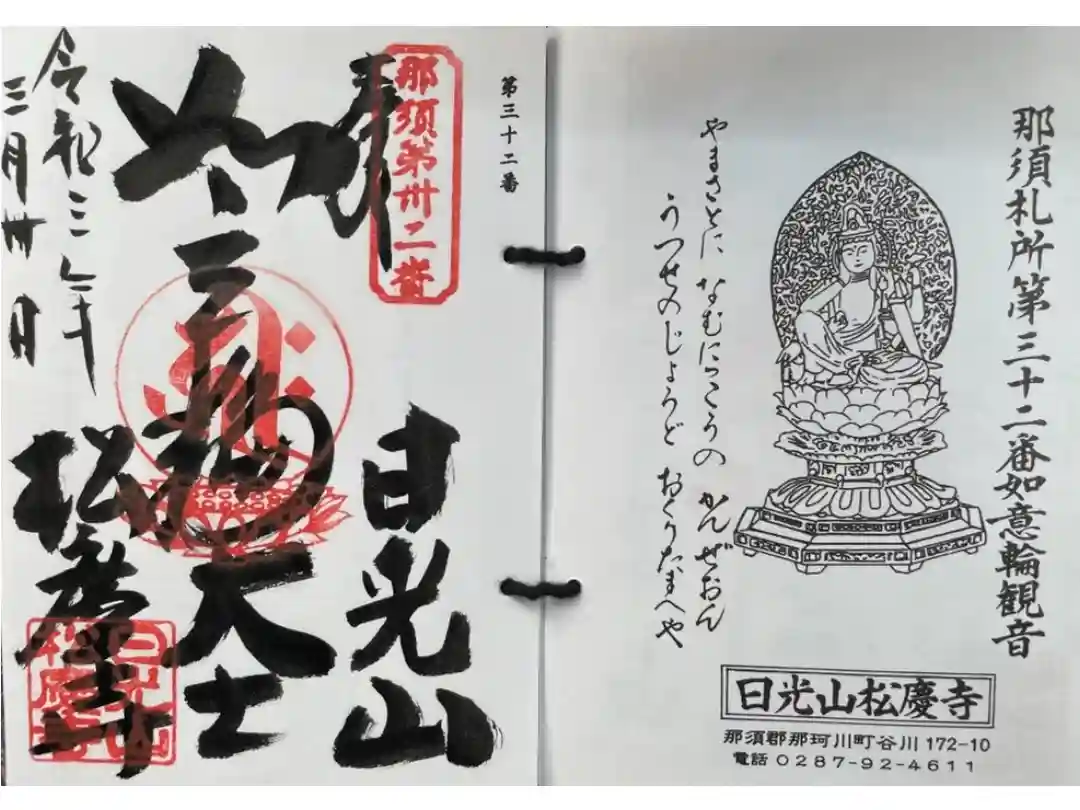 那須札所第三十二番如意輪観音
やまさとに かんぜおん
うつせのじょうど おくりたまへや
日光山松慶寺
那須郡那珂川町谷川172-10
電話 0287-92-4611
第三十二番
那須第卅二番
奉拝
日光山
如意輪大士
松慶寺
令和三年
三月卅日
日光山
松慶寺